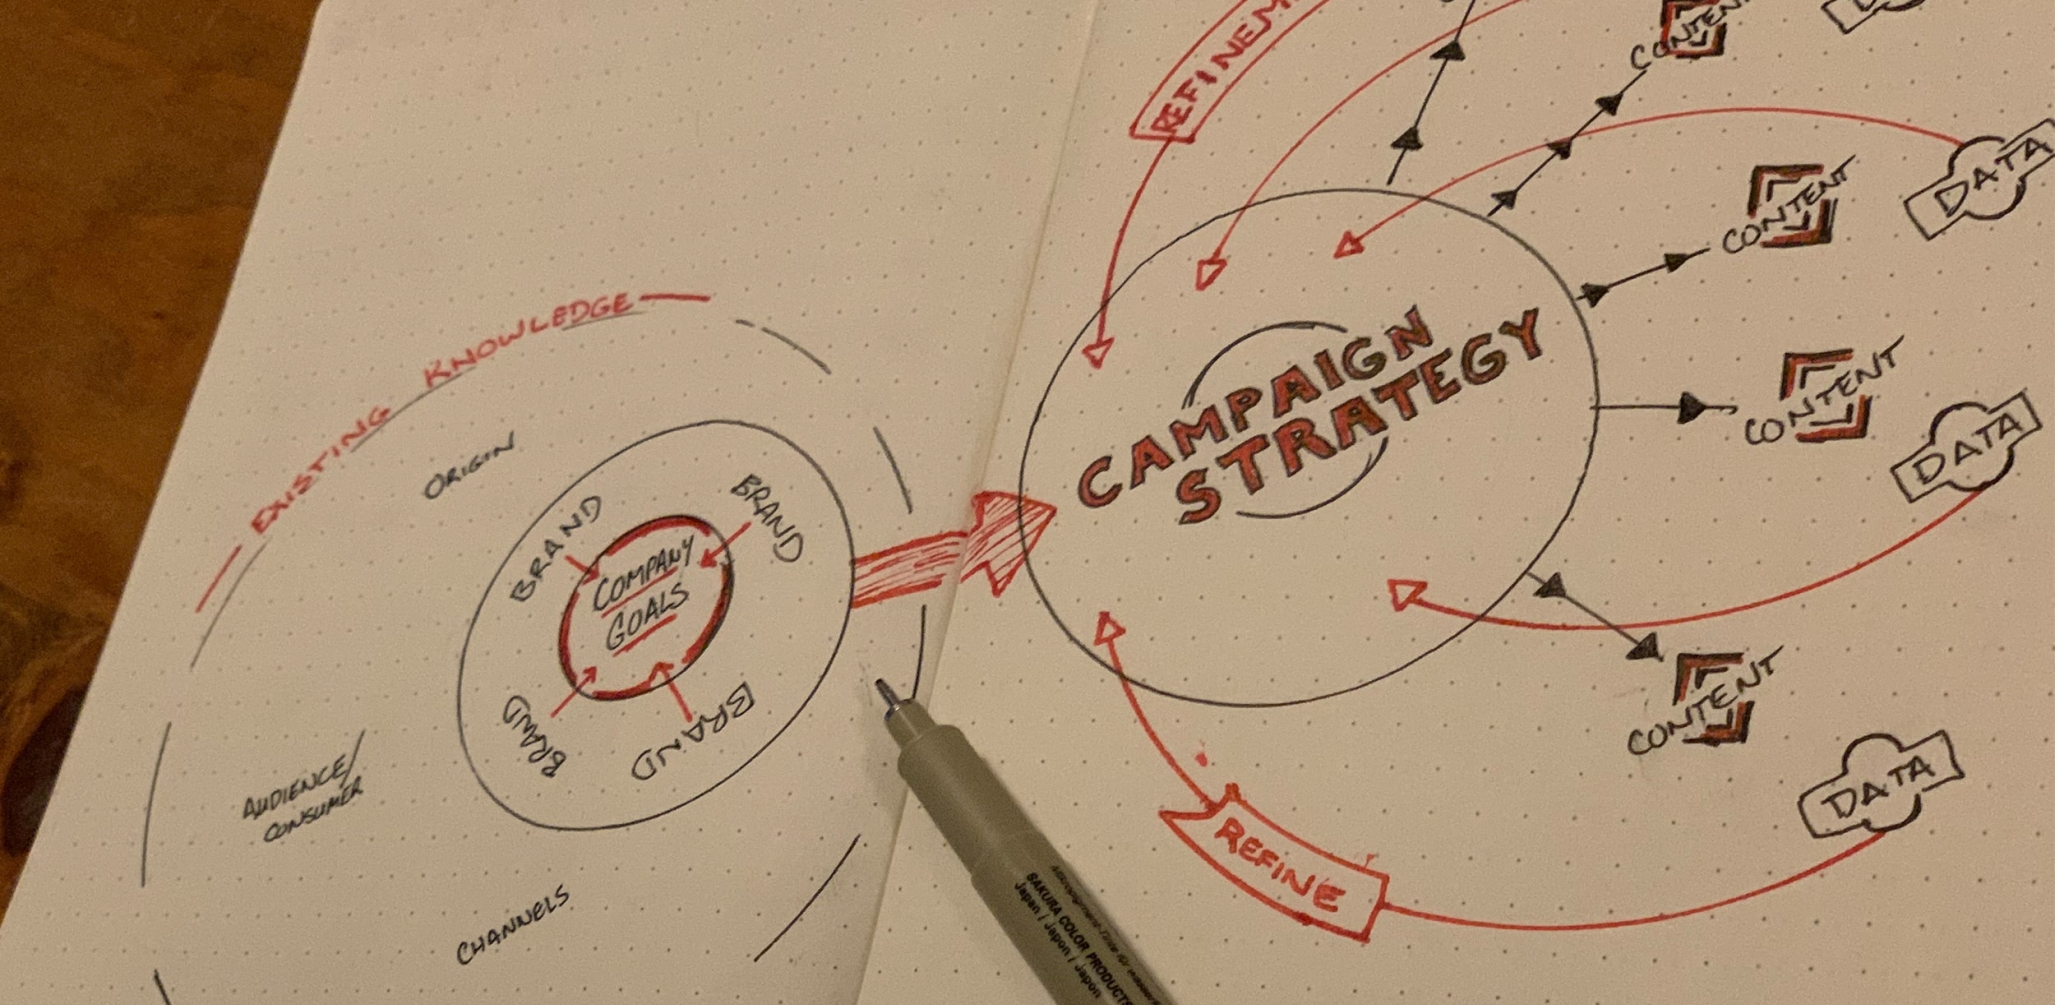 EXISTING KNOWLEDGE
ORIGIN
BRAND
BRAND
COMPANY
GOALS
BRAND
BRAND
AUDIENCE/
CONSUMER
CHANNELS
CAMPAIGN
STRATEGY
CONTENT
CONTENT
DATA
CONTENT
DATA
CONTENT
DATA
REFINE
SAKURA COLOR PRODUCTS
Japan / Japon / Japan